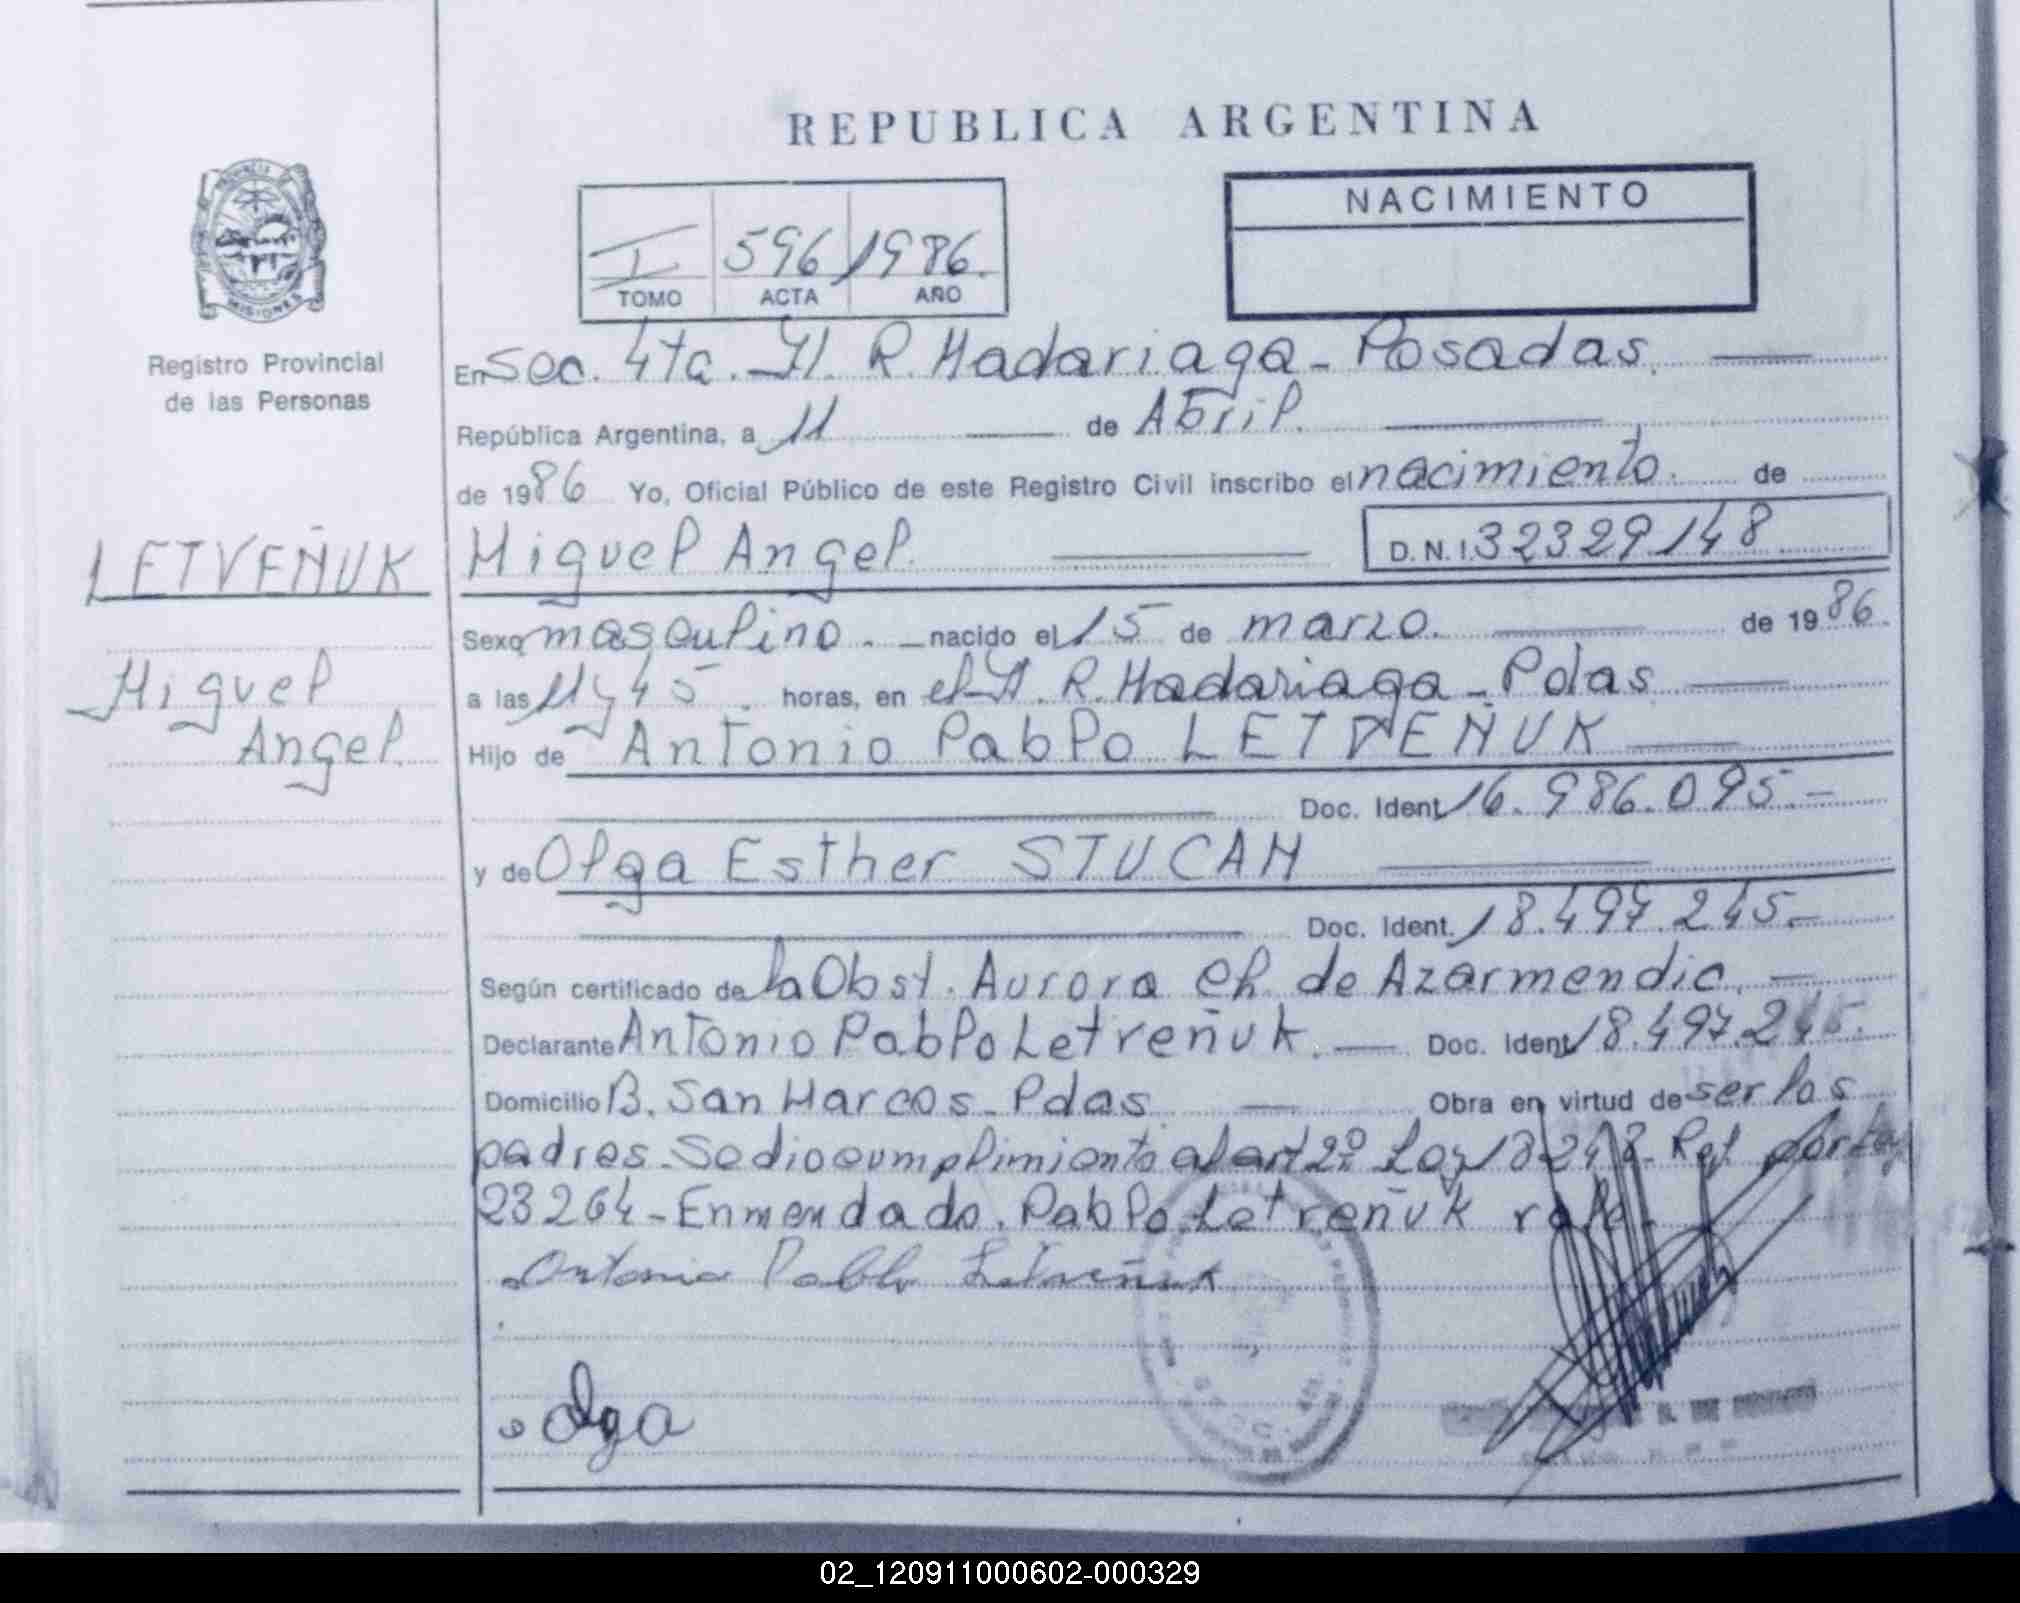 REPUBLICA ARGENTINA
NACIMIENTO
I 596 1986.
TOMO ACTA AÑO
MISIONES
Registro Provincial
de las Personas
LETVEÑUK
Miguel
Angel.
En Sec. 4ta. H. R. Madariaga - Posadas.
República Argentina, a 11 de Abril.
de 1986 Yo, Oficial Público de este Registro Civil inscribo el nacimiento. de
Miguel Angel. D.N.I. 32329148
Sexo masculino. nacido el 15 de marzo. de 1986.
a las 11 y 45. horas, en el H. R. Madariaga - Pdas
Hijo de Antonio Pablo LETVEÑUK
Doc. Ident. 16.986.095.-
y de Olga Esther STUCAM
Doc. Ident. 18.497.245.-
Según certificado de la Obst. Aurora Ch. de Azarmendic.
Declarante Antonio Pablo Letreñuk. Doc. Ident. 18.497.245.
Domicilio B. San Marcos - Pdas Obra en virtud de ser los
padres. Se dio cumplimiento al art 2º Ley 18248 - Ref. por Ley
23264 - Enmendado. Pablo. Letreñuk vale.
Antonio Pablo Letreñuk
Olga
02_120911000602-000329